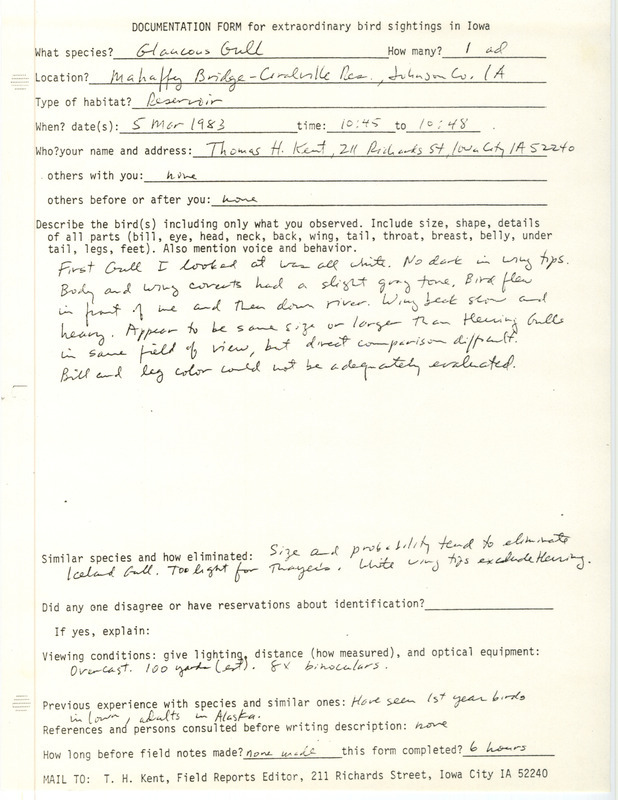 DOCUMENTATION FORM for extraordinary bird sightings in Iowa
What species? Glaucous Gull How many? 1 ad
Location? Mahaffy Bridge - Coralville Res., Johnson Co. IA
Type of habitat? Reservoir
When? date(s): 5 Mar 1983 time: 10:45 to 10:48
Who?your name and address: Thomas H. Kent, 211 Richards St, Iowa City IA 52240
others with you: none
others before or after you: none
Describe the bird(s) including only what you observed. Include size, shape, details
of all parts (bill, eye, head, neck, back, wing, tail, throat, breast, belly, under
tail, legs, feet). Also mention voice and behavior.
First Gull I looked at was all white. No dark in wing tips.
Body and wing coverts had a slight gray tone. Bird flew
in front of me and then down river. Wing beat slow and
heavy. Appear to be same size or larger than Herring Gulls
in same field of view, but direct comparison difficult.
Bill and leg color could not be adequately evaluated.
Similar species and how eliminated: Size and probability tend to eliminate
Iceland Gull. Too light for Thayer's. White wing tips exclude Herring.
Did any one disagree or have reservations about identification?
If yes, explain:
Viewing conditions: give lighting, distance (how measured), and optical equipment:
Overcast. 100 yards (est). 8X binoculars.
Previous experience with species and similar ones: Have seen 1st year birds
in Iowa, adults in Alaska.
References and persons consulted before writing description: none
How long before field notes made? none made this form completed? 6 hours
MAIL TO: T. H. Kent, Field Reports Editor, 211 Richards Street, Iowa City IA 52240